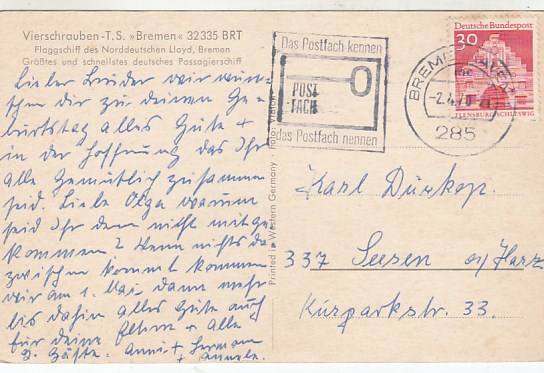 Vierschrauben-T.S. »Bremen« 32335 BRT
Flaggschiff des Norddeutschen Lloyd, Bremen
Größtes und schnellstes deutsches Passagierschiff
Lieber Bruder wir wün-
schen dir zu deinem Ge-
burtstag alles Gute +
in der Hoffnung das Ihr
alle Gemütlich zusammen
seid. Liebe Olga warum
seid Ihr denn nicht mitge
kommen? Wenn nichts da
zwischen kommt kommen
wir am 1. Mai. dann mehr
bis dahin alles Gute auch
für deine Eltern + alle
Gäste. Anni + Hermann
Printed in Western Germany
Das Postfach kennen
POST
FACH
das Postfach nennen
Deutsche Bundespost
30
FLENSBURG/SCHLESWIG
285
Karl Dürkop.
337 Seesen a/Harz
Kurparkstr. 33.